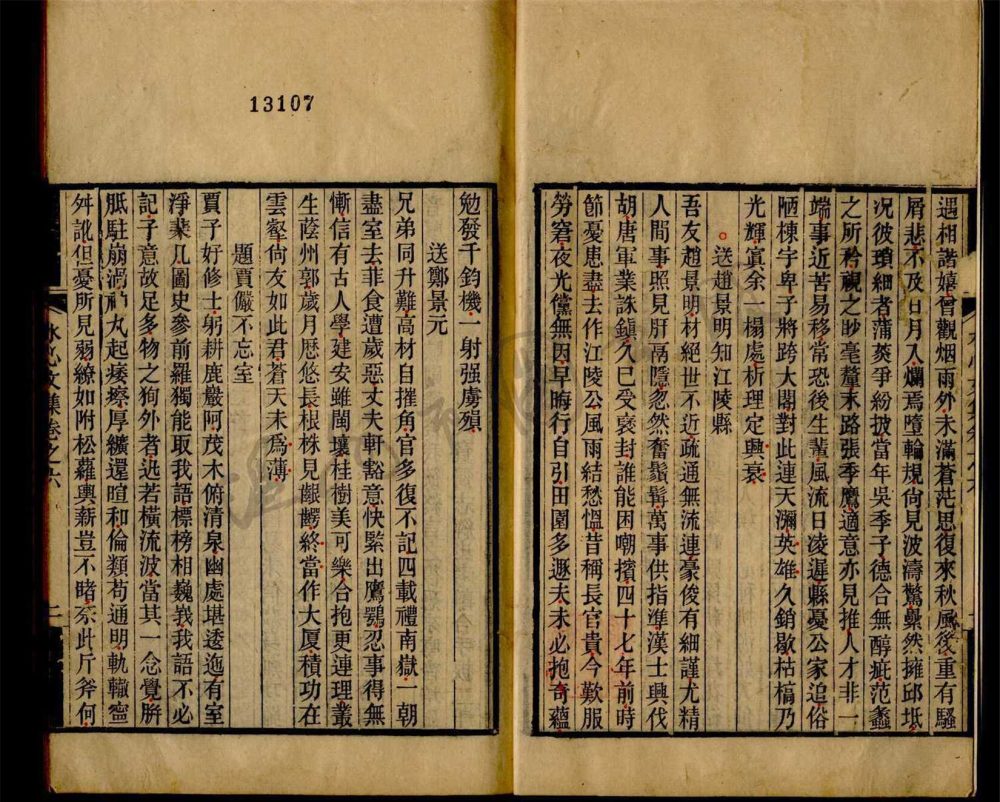 遇相諧嬉曾觀烟雨外未滿蒼茫思復來秋風後重有騷
屑悲不及日月入爛焉墮輪規尙見波濤驚㬥然擁邱坻
況彼瑣細者蒲葵爭紛披當年吳季子德合無醇疵范蠡
之所矜視之眇毫釐末路張季鷹適意亦見推人才非一
端事近苦易移常恐後生輩風流日淩遲縣憂公家追俗
陋棟宇卑子將跨大閣對此連天瀰英雄久銷歇枯槁乃
光輝寘余一榻處析理定興衰
送趙景明知江陵縣
吾友趙景明材絕世不近疏通無流連豪俊有細謹尤精
人間事照見肝鬲隱忽然奮鬚髯萬事供指準漢士興伐
胡唐軍業誅鎭久巳受褒封誰能困嘲擯四十七年前時
節憂患盡去作江陵公風雨結愁慍昔稱長官貴今歎服
勞窘夜光儻無因早晦行自引田園多遯夫未必抱奇蘊
勉發千鈞機一射强虜殞
送鄭景元
兄弟同升難高材自摧角官多復不記四載禮南嶽一朝
盡室去菲食遭歲惡丈夫軒豁意快緊出鷹鶚忍事得無
慚信有古人學建安雖閩壤桂樹美可樂合抱更連理叢
生蔭州郭歲月悠長根株見齦齶終當作大厦積功在
雲壑尙友如此君蒼天未爲薄
題賈儼不忘室
賈子好修士躬耕鹿巖阿茂木俯清泉幽處堪透迤有室
淨棐几圖史參前羅獨能取我語標榜相巍峩我語不必
記子意故足多物之狗外者远若橫流波當其一念覺胼
胝駐崩渦神丸起痿瘵厚纊還暄和倫類苟通明軌轍寍
舛訛但憂所見弱繚如附松蘿輿薪豈不睹柰此斤斧何
水心文集卷之六
二
13107